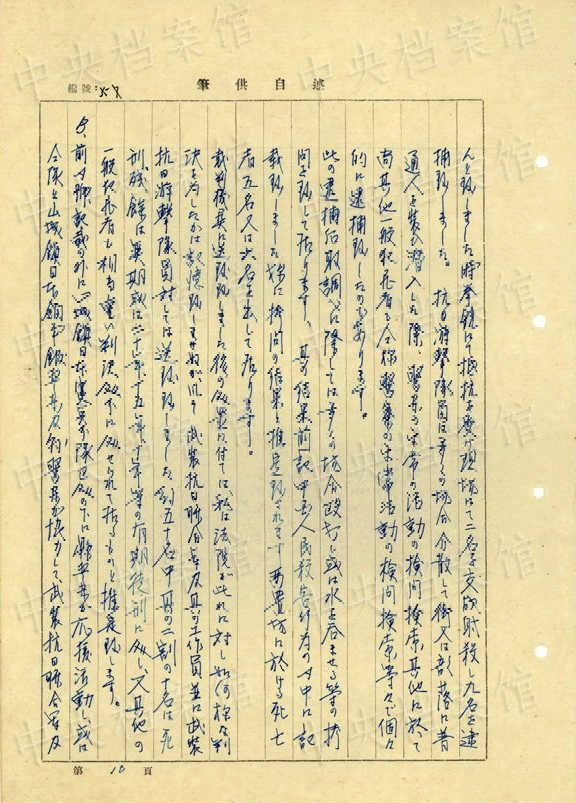 中央档案馆
編號: 58
述自供筆
んと致しました際拳銃にて抵抗を受け現場にて二名を交戦射殺し九名を逮
捕致しました。抗日游撃隊員は多くの場合分散して街又は部落に普
通人を装ひ潜入した際、警察の平常の活動の検問検索其他に於て
尚其他一般犯罪者も全様警察の平常活動の検問検索等々で個々
的に逮捕致したのであります。
此の逮捕后取調べに際しては多くの場合殴打し或は水を呑ませる等の拷
問を致して居ります、其の結果前記中国人民殺害行為の中に記
載致しました様に拷問の結果と推定致されます 留置場に於ける死亡
者五名又は六名を出して居ります。
裁判機関に送致致しました後の処置に付ては、私は法院が此れに対し如何様な判
決を与したかは記憶致しませぬが 武装抗日聯合軍及其の工作員並に武装
抗日游撃隊員に対しては送致致しました約五十名中其の二割の十名は死
刑残餘は無期或は二十年、十五年、十年等の有期徒刑に処し、又其他の
一般犯罪者も相当重い判決処下に処せられて居るものと推定致します。
前 號記載の外に山城鎮日本憲兵隊 の下に縣警察が応援活動し或は
全隊と山城鎮日本領事館警察及び 警察が協力して武装抗日聯合軍及
第 10 頁